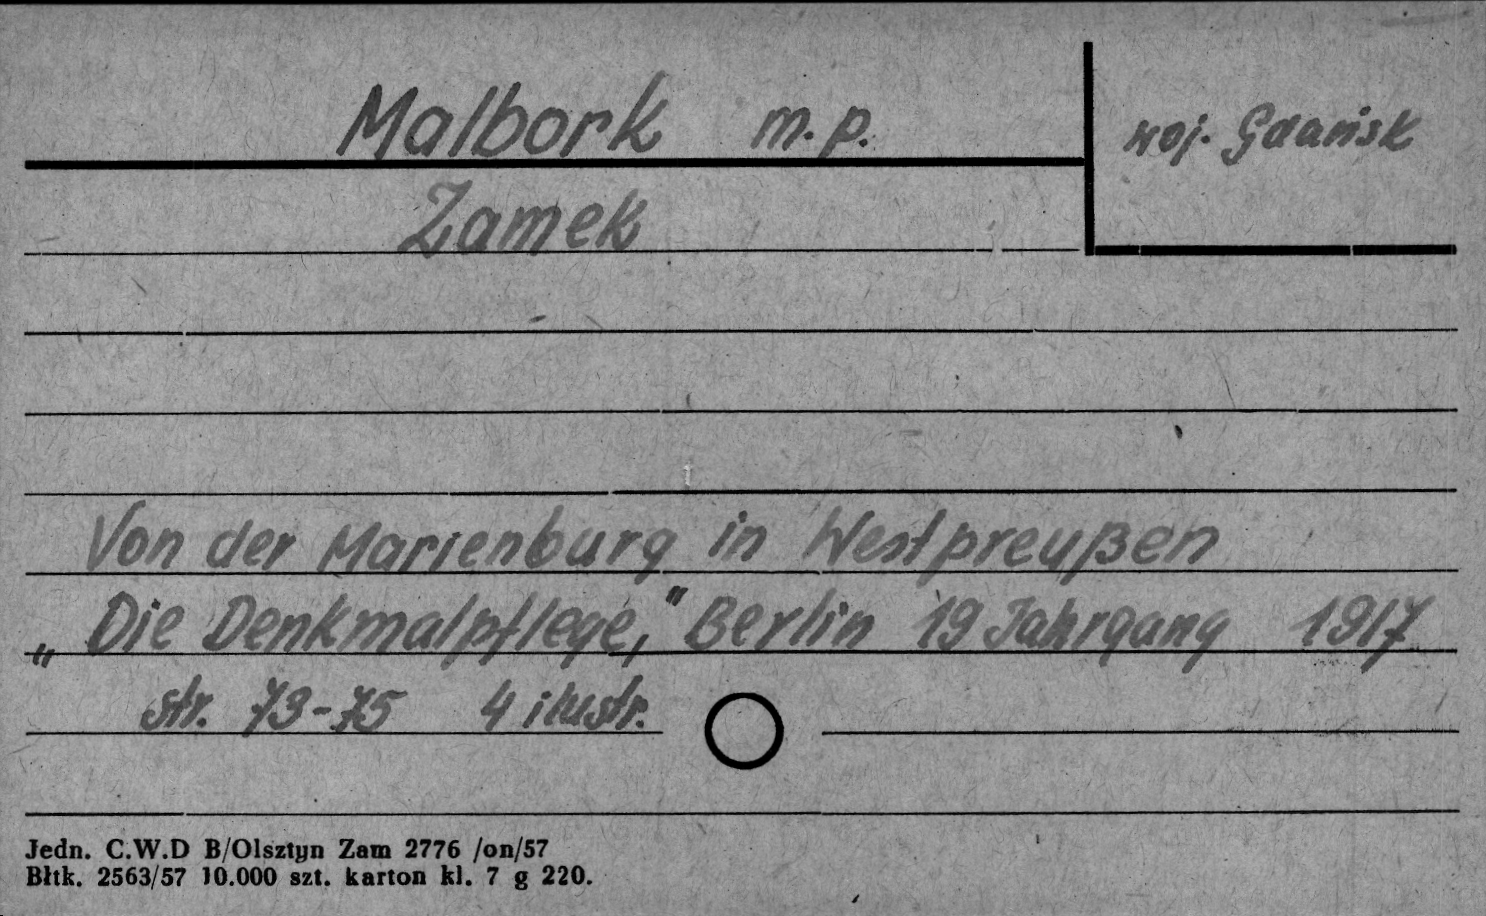 Malbork m.p.
woj. Gdańsk
Zamek
Von der Marienburg in Westpreußen
„Die Denkmalpflege," Berlin 19 Jahrgang 1917
str. 73-75 4 ilustr.
Jedn. C.W.D B/Olsztyn Zam 2776 /on/57
Błtk. 2563/57 10.000 szt. karton kl. 7 g 220.